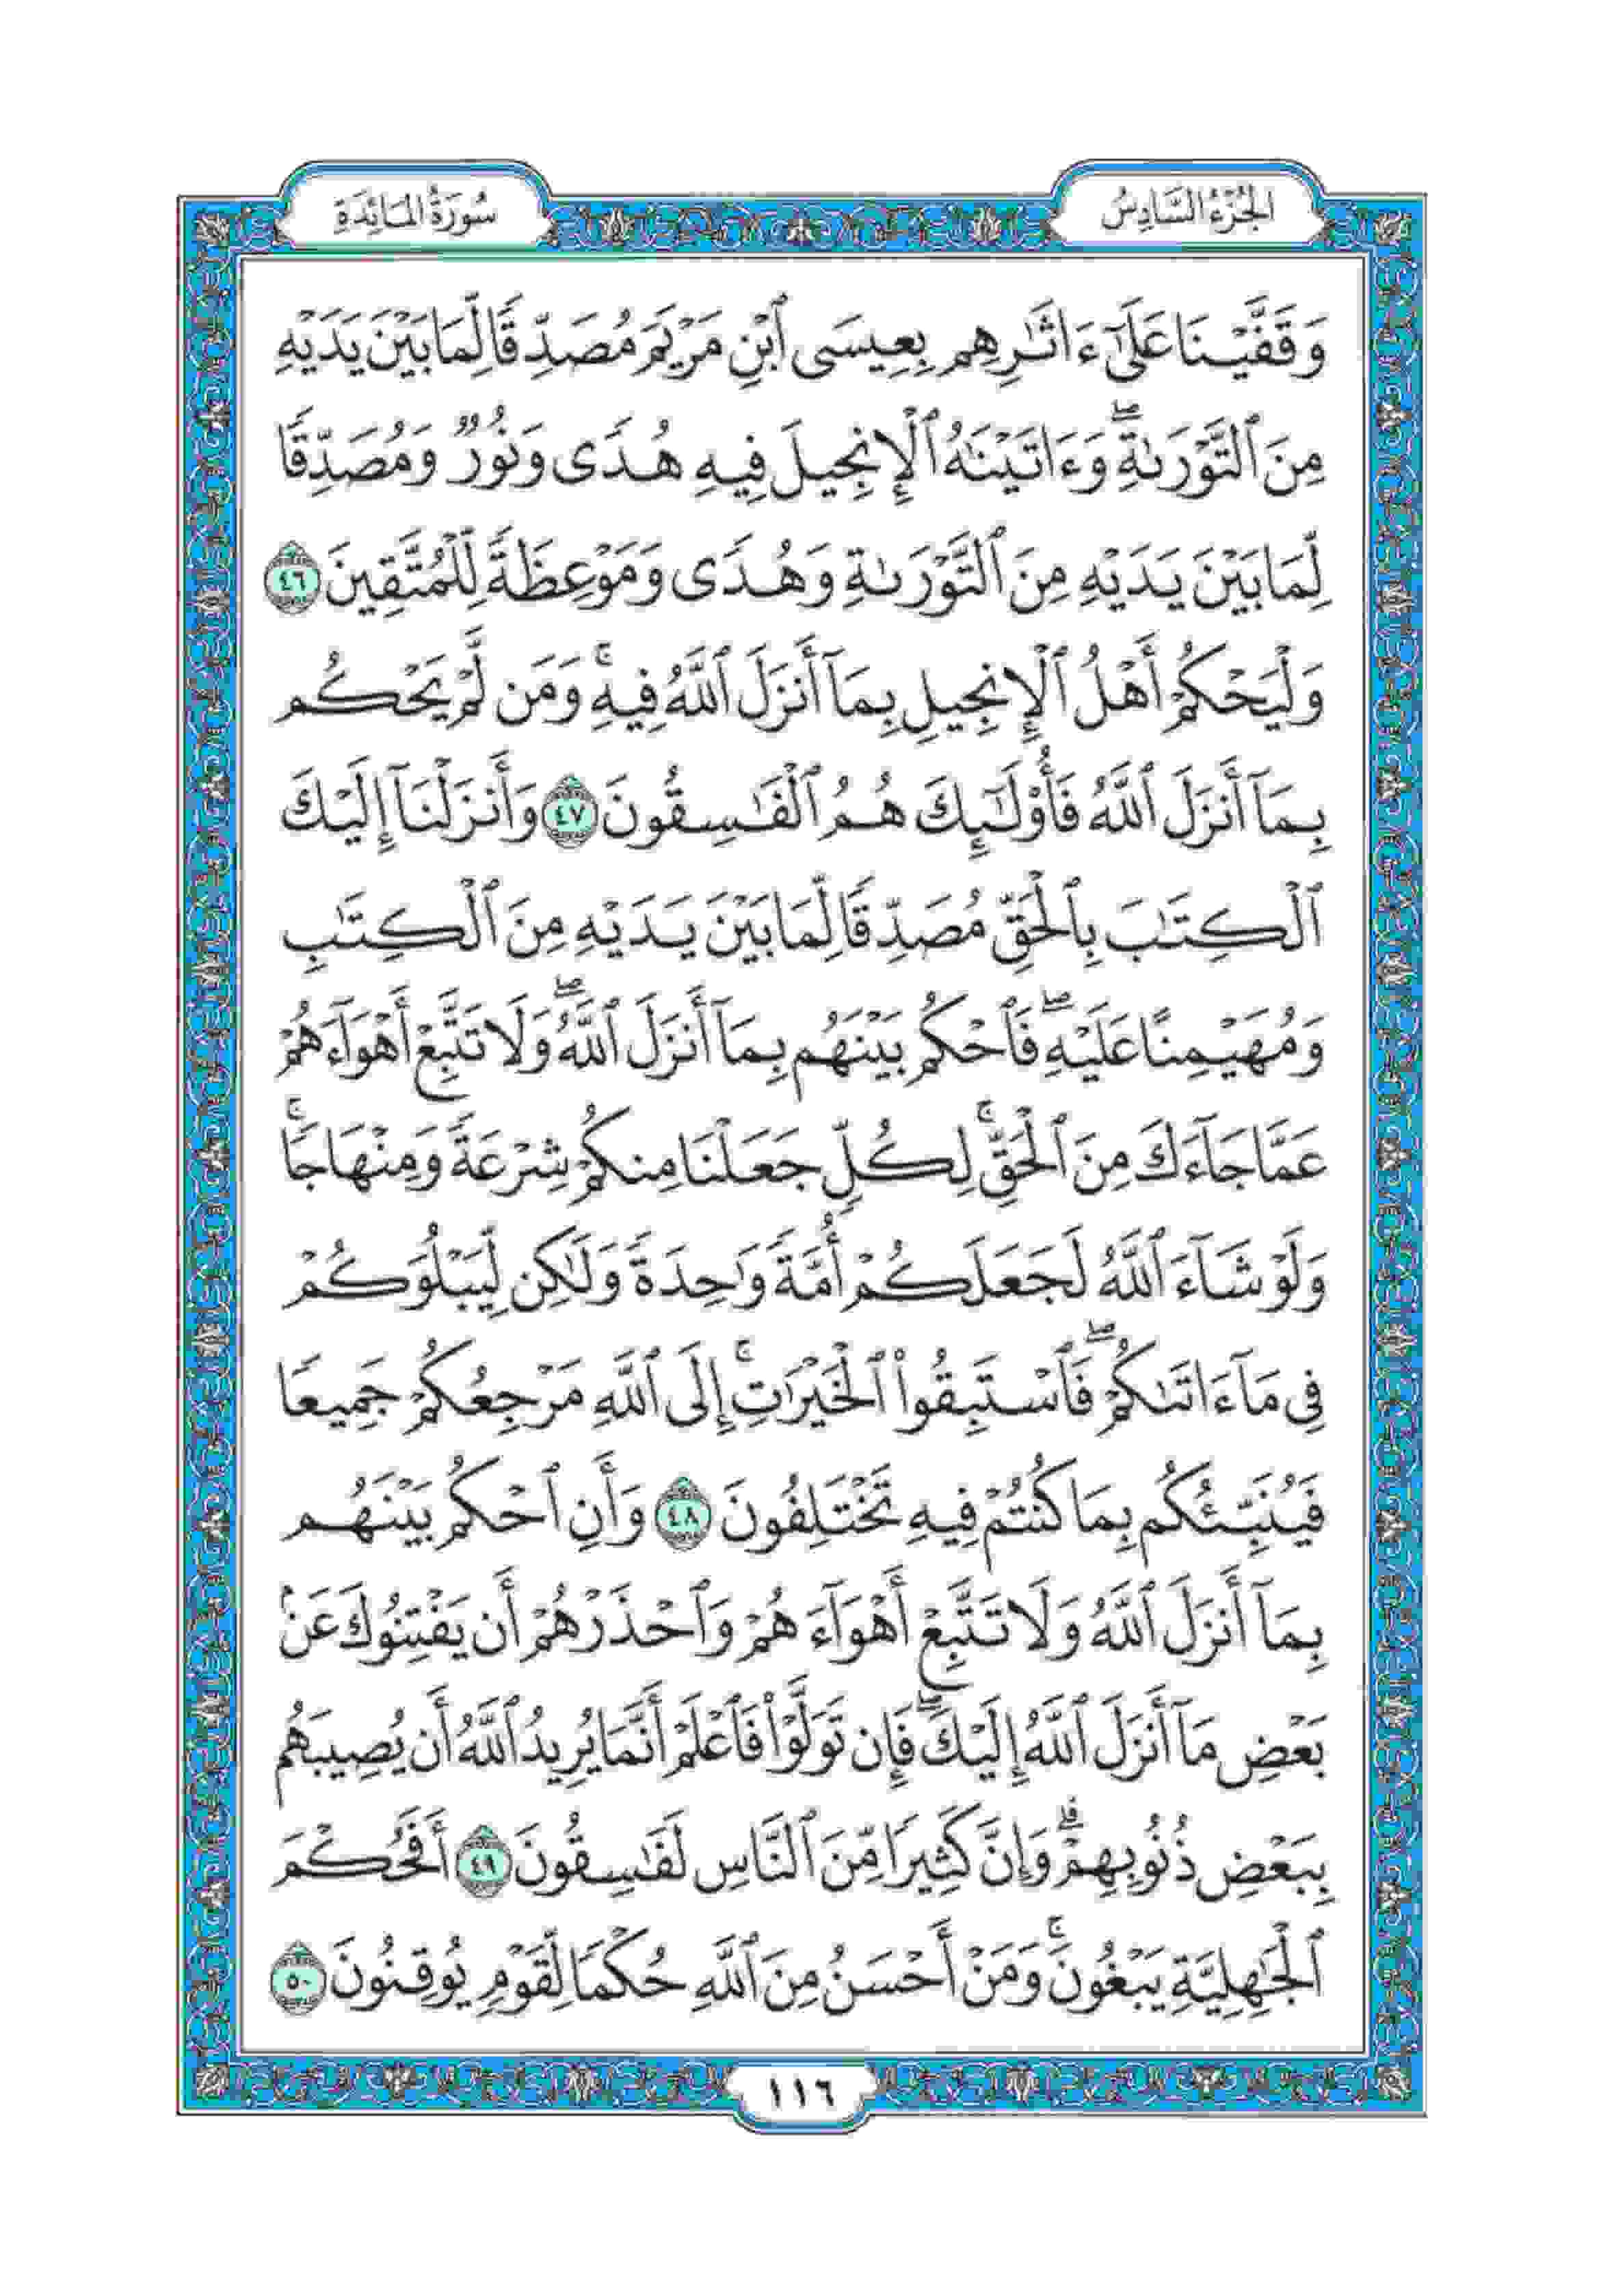 الجُزْءُ السَّادِسُ
سُورَةُ المَائِدَةِ
وَقَفَّيْنَا عَلَىٰٓ ءَاثَٰرِهِم بِعِيسَى ٱبْنِ مَرْيَمَ مُصَدِّقًا لِّمَا بَيْنَ يَدَيْهِ
مِنَ ٱلتَّوْرَىٰةِۖ وَءَاتَيْنَٰهُ ٱلْإِنجِيلَ فِيهِ هُدًى وَنُورٌ وَمُصَدِّقًا
لِّمَا بَيْنَ يَدَيْهِ مِنَ ٱلتَّوْرَىٰةِ وَهُدًى وَمَوْعِظَةً لِّلْمُتَّقِينَ ٤٦
وَلْيَحْكُمْ أَهْلُ ٱلْإِنجِيلِ بِمَآ أَنزَلَ ٱللَّهُ فِيهِۚ وَمَن لَّمْ يَحْكُم
بِمَآ أَنزَلَ ٱللَّهُ فَأُوْلَٰٓئِكَ هُمُ ٱلْفَٰسِقُونَ ٤٧ وَأَنزَلْنَآ إِلَيْكَ
ٱلْكِتَٰبَ بِٱلْحَقِّ مُصَدِّقًا لِّمَا بَيْنَ يَدَيْهِ مِنَ ٱلْكِتَٰبِ
وَمُهَيْمِنًا عَلَيْهِۖ فَٱحْكُم بَيْنَهُم بِمَآ أَنزَلَ ٱللَّهُۖ وَلَا تَتَّبِعْ أَهْوَآءَهُمْ
عَمَّا جَآءَكَ مِنَ ٱلْحَقِّۚ لِكُلٍّ جَعَلْنَا مِنكُمْ شِرْعَةً وَمِنْهَاجًاۚ
وَلَوْ شَآءَ ٱللَّهُ لَجَعَلَكُمْ أُمَّةً وَٰحِدَةً وَلَٰكِن لِّيَبْلُوَكُمْ
فِي مَآ ءَاتَىٰكُمْۖ فَٱسْتَبِقُواْ ٱلْخَيْرَٰتِۚ إِلَى ٱللَّهِ مَرْجِعُكُمْ جَمِيعًا
فَيُنَبِّئُكُم بِمَا كُنتُمْ فِيهِ تَخْتَلِفُونَ ٤٨ وَأَنِ ٱحْكُم بَيْنَهُم
بِمَآ أَنزَلَ ٱللَّهُ وَلَا تَتَّبِعْ أَهْوَآءَهُمْ وَٱحْذَرْهُمْ أَن يَفْتِنُوكَ عَنۢ
بَعْضِ مَآ أَنزَلَ ٱللَّهُ إِلَيْكَۖ فَإِن تَوَلَّوْاْ فَٱعْلَمْ أَنَّمَا يُرِيدُ ٱللَّهُ أَن يُصِيبَهُم
بِبَعْضِ ذُنُوبِهِمْۗ وَإِنَّ كَثِيرًا مِّنَ ٱلنَّاسِ لَفَٰسِقُونَ ٤٩ أَفَحُكْمَ
ٱلْجَٰهِلِيَّةِ يَبْغُونَۚ وَمَنْ أَحْسَنُ مِنَ ٱللَّهِ حُكْمًا لِّقَوْمٍ يُوقِنُونَ ٥٠
١١٦